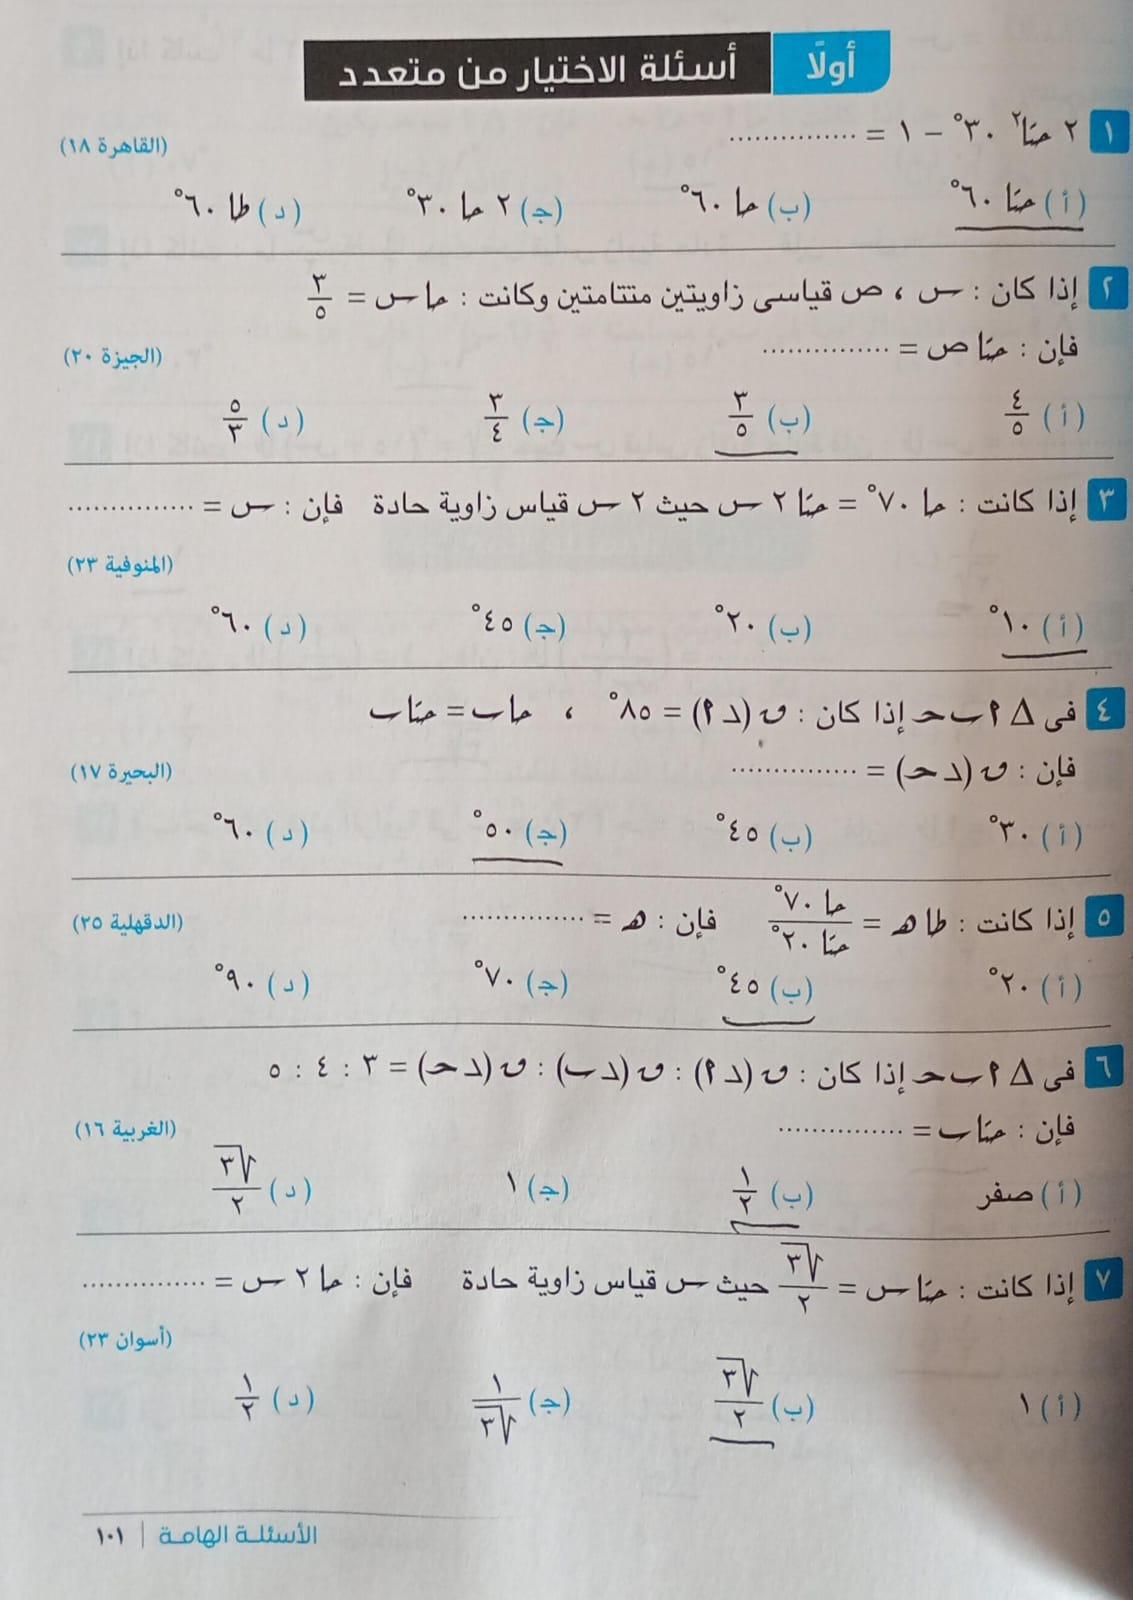 أولًا أسئلة الاختيار من متعدد
١ ٢ حتا² ٣٠° − ١ = ............... (القاهرة ١٨)
(أ) حتا ٦٠° (ب) حا ٦٠° (ج) ٢ حا ٣٠° (د) طا ٦٠°
٢ إذا كان : س ، ص قياسى زاويتين متتامتين وكانت : حا س = ٣/٥
فإن : حتا ص = ............... (الجيزة ٢٠)
(أ) ٤/٥ (ب) ٣/٥ (ج) ٣/٤ (د) ٥/٣
٣ إذا كانت : حا ٧٠° = حتا ٢ س حيث ٢ س قياس زاوية حادة فإن : س = ...............
(المنوفية ٢٣)
(أ) ١٠° (ب) ٢٠° (ج) ٤٥° (د) ٦٠°
٤ فى △ ا ب ح إذا كان : ق (∠ ا) = ٨٥° ، حا ب = حتا ب
فإن : ق (∠ ح) = ............... (البحيرة ١٧)
(أ) ٣٠° (ب) ٤٥° (ج) ٥٠° (د) ٦٠°
٥ إذا كانت : طا ه = حا ٧٠° / حتا ٢٠° فإن : ه = ............... (الدقهلية ٢٥)
(أ) ٢٠° (ب) ٤٥° (ج) ٧٠° (د) ٩٠°
٦ فى △ ا ب ح إذا كان : ق (∠ ا) : ق (∠ ب) : ق (∠ ح) = ٣ : ٤ : ٥
فإن : حتا ب = ............... (الغربية ١٦)
(أ) صفر (ب) ١/٢ (ج) ١ (د) √٣/٢
٧ إذا كانت : حتا س = √٣/٢ حيث س قياس زاوية حادة فإن : حا ٢ س = ...............
(أسوان ٢٣)
(أ) ١ (ب) √٣/٢ (ج) ١/√٣ (د) ١/٢
الأسئلة الهامة | ١٠١